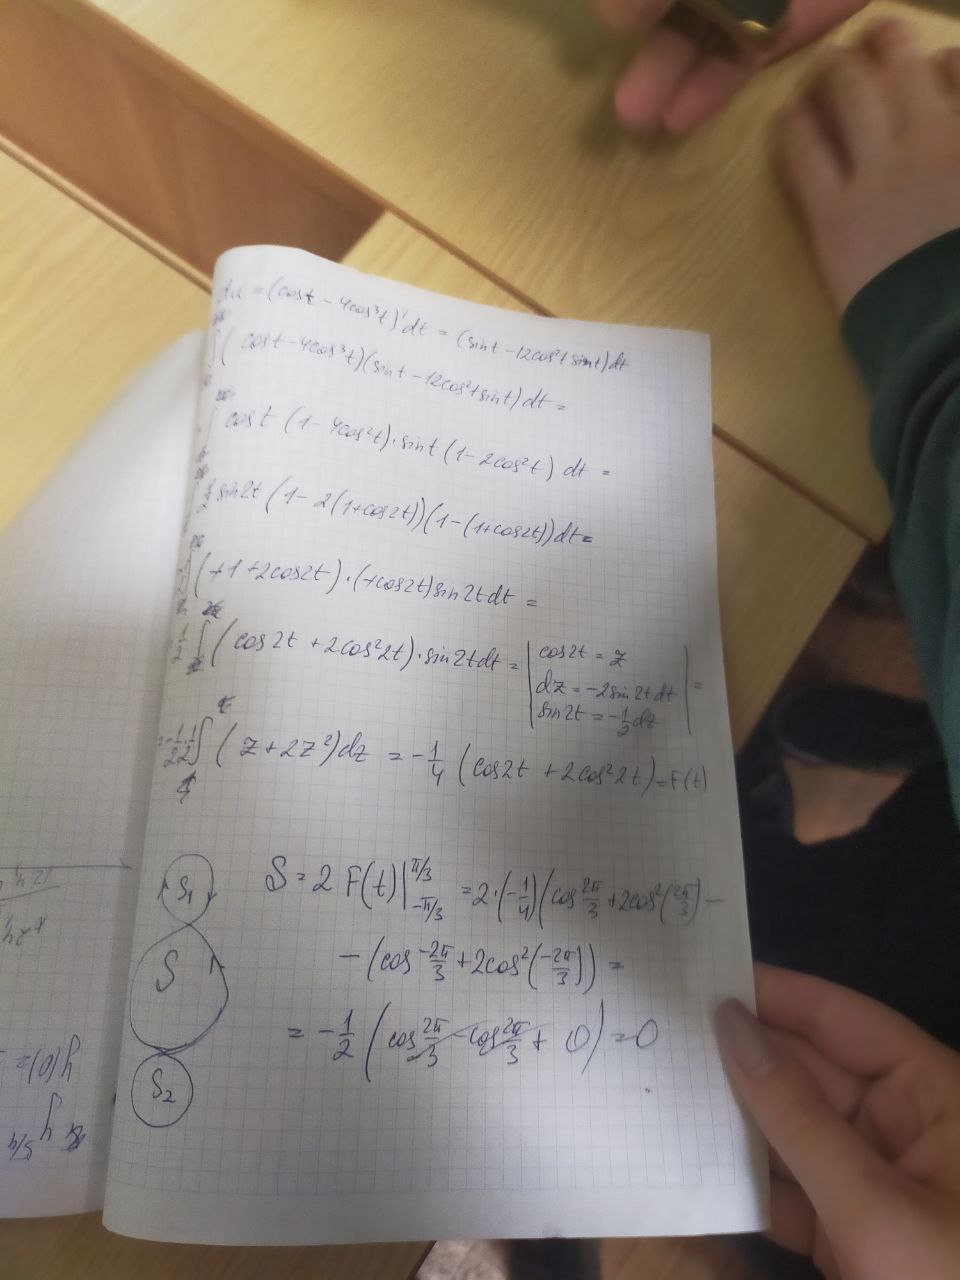 = (cost - 4cos³t)'dt = (sint - 12cos²t sint)dt
∫(cost - 4cos³t)(sint - 12cos²t sint)dt =
∫cost (1 - 4cos²t)·sint (1 - 2cos²t) dt =
sin2t (1 - 2(1+cos2t))(1 - (1+cos2t))dt =
(+1 + 2cos2t)·(+cos2t)sin2tdt =
∫(cos2t + 2cos²2t)·sin2tdt = | cos2t = z
dz = -2sin2tdt | =
sin2t = -1/2 dz
= -1/2·1/2 ∫(z + 2z²)dz = -1/4 (cos2t + 2cos²2t) = F(t)
S₁
S = 2 F(t)|π/3 -π/3 = 2·(-1/4)(cos 2π/3 + 2cos²(2π/3) -
S
- (cos -2π/3 + 2cos²(-2π/3)) =
= -1/2 (cos 2π/3 - cos 2π/3 + 0) = 0
S₂
y(0) =
y